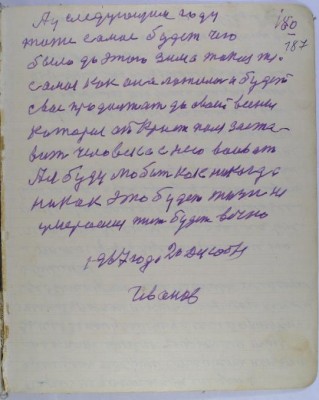 180
187
А у следующем году
тоже самое будет что
было до этого зима такая же
самая как она ложилась и будет
свое продолжать до своей весны
которая открыт поля заста-
вит человека с него воевать
А я буду любить как никогда
никак это будет жизнь не
умераеш тот будет вечно
1967 года 20 декабря
Иванов